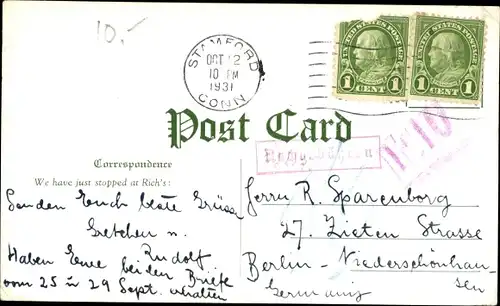 10.-
STAMFORD
OCT 12
10 PM
1931
CONN.
UNITED STATES POSTAGE
1 CENT 1
UNITED STATES POSTAGE
1 CENT 1
Post Card
Correspondence
We have just stopped at Rich's:
Senden Euch beste Grüsse
Gretchen u.
Rudolf
Haben Eure beiden Briefe
vom 25 u 29 Sept. erhalten
Herrn R. Sparenborg
27. Zieten Strasse
Berlin - Niederschönhau
sen
Germany